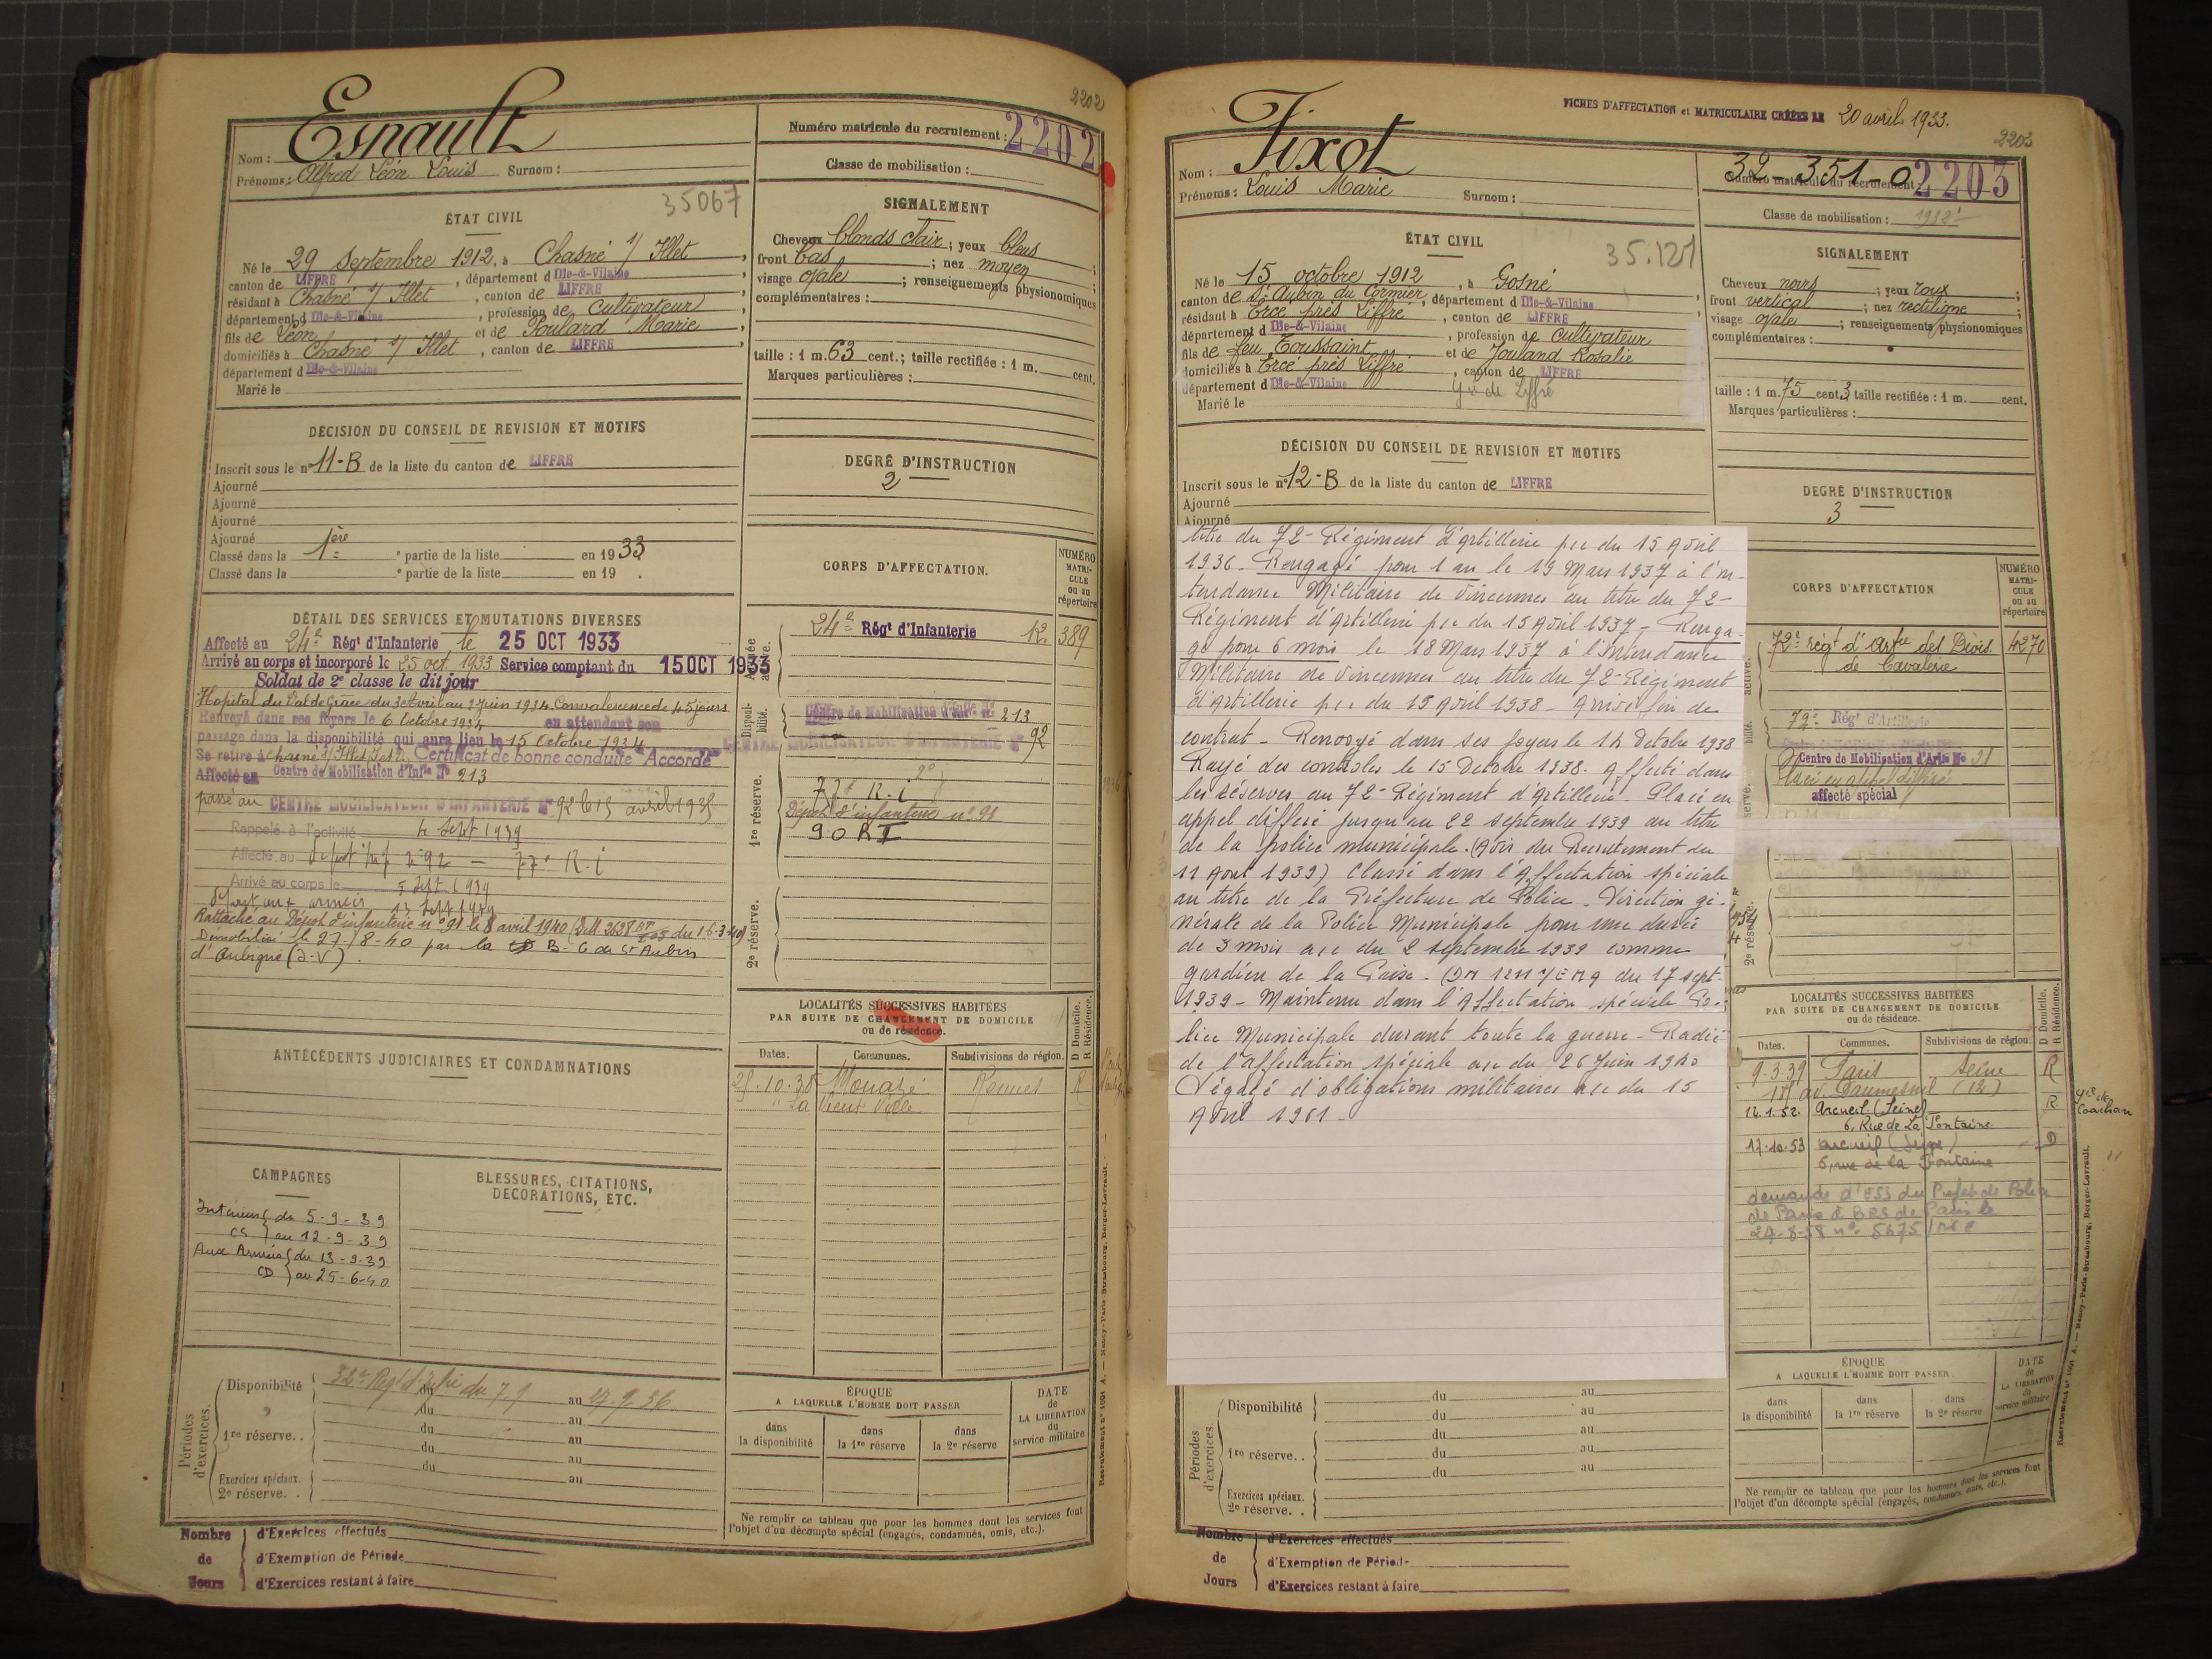 2202
Esnault
Nom :
Prénoms : Alfred Léon Louis Surnom :
Numéro matricule du recrutement : 2202
Classe de mobilisation :
35067
ÉTAT CIVIL
Né le 29 septembre 1912, à Chasné s/ Illet,
canton de LIFFRE, département d Ille-&-Vilaine,
résidant à Chasné s/ Illet, canton de LIFFRE,
département d Ille-&-Vilaine, profession de Cultivateur,
fils de Léon et de Poulard Marie,
domiciliés à Chasné s/ Illet, canton de LIFFRE
département d Ille-&-Vilaine
Marié le
SIGNALEMENT
Cheveux blonds clair ; yeux bleus ;
front bas ; nez moyen ;
visage ovale ; renseignements physionomiques
complémentaires :
taille : 1 m. 63 cent. ; taille rectifiée : 1 m. cent.
Marques particulières :
DÉCISION DU CONSEIL DE REVISION ET MOTIFS
Inscrit sous le n° 11-B de la liste du canton de LIFFRE
Ajourné
Ajourné
Ajourné
Ajourné
Classé dans la 1ère partie de la liste en 1933
Classé dans la partie de la liste en 19 .
DEGRÉ D'INSTRUCTION
2
DÉTAIL DES SERVICES ET MUTATIONS DIVERSES
Affecté au 24e Régt d'Infanterie le 25 OCT 1933
Arrivé au corps et incorporé le 25 oct. 1933 Service comptant du 15 OCT 1933
Soldat de 2e classe le dit jour
Hopital du Val de Grâce du 3 Avril au 9 Juin 1934. Convalescence de 45 jours
Renvoyé dans ses foyers le 6 Octobre 1934 en attendant son
passage dans la disponibilité qui aura lieu le 15 Octobre 1934
Se retire à Chasné s/ Illet (I et V) Certificat de bonne conduite "Accordé"
Affecté au Centre de Mobilisation d'Infie N° 213
passé au CENTRE MOBILISATEUR D'INFANTERIE N° 92 le 15 avril 1935
Rappelé à l'activité 4 sept 1939
Affecté au Dépot inf n° 92 — 77e R.i
Arrivé au corps le 5 Sept 1939
Départ aux armées 13 sept 1939
Rattaché au Dépot d'infanterie n° 91 le 8 avril 1940
Démobilisé le 27-8-40 par la B-C de St Aubin
d'Aubigné (I-V).
CORPS D'AFFECTATION.
NUMÉRO MATRICULE ou au répertoire
Armée active.
24e Régt d'Infanterie 12e 389
Disponibilité.
Centre de Mobilisation d'Infie N° 213
CENTRE MOBILISATEUR D'INFANTERIE N° 92
1re réserve.
77e R.i
Dépot d'infanterie n° 91
90 RI
2e réserve.
LOCALITÉS SUCCESSIVES HABITÉES
PAR SUITE DE CHANGEMENT DE DOMICILE
ou de résidence.
D Domicile. R Résidence.
Dates. Communes. Subdivisions de région.
25.10.35 Mouazé Rennes R
" La Vieux Ville
ANTÉCÉDENTS JUDICIAIRES ET CONDAMNATIONS
CAMPAGNES
Intérieur du 5-9-39
CS au 12-9-39
Aux Armées du 13-9-39
CD au 25-6-40
BLESSURES, CITATIONS,
DÉCORATIONS, ETC.
Périodes d'exercices.
Disponibilité du 7.9 au 27.9.36
du au
1re réserve. . du au
du au
du au
Exercices spéciaux.
2e réserve. .
ÉPOQUE
A LAQUELLE L'HOMME DOIT PASSER
dans la disponibilité
dans la 1re réserve
dans la 2e réserve
DATE de LA LIBÉRATION du service militaire
Ne remplir ce tableau que pour les hommes dont les services font
l'objet d'un décompte spécial (engagés, condamnés, omis, etc.).
Nombre de Jours
d'Exercices effectués
d'Exemption de Période
d'Exercices restant à faire
Recrutement n° 1061 A. — Nancy-Paris-Strasbourg, Berger-Levrault.
FICHES D'AFFECTATION et MATRICULAIRE CRÉÉES LE 20 avril 1933.
2203
Fixot
Nom :
Prénoms : Louis Marie Surnom :
32-351-0
Numéro matricule du recrutement : 2203
Classe de mobilisation : 1932
35.121
ÉTAT CIVIL
Né le 15 octobre 1912, à Gosné,
canton de St Aubin du Cormier, département d Ille-&-Vilaine,
résidant à Ercé près Liffré, canton de LIFFRE,
département d Ille-&-Vilaine, profession de Cultivateur
fils de feu Toussaint et de Jouland Rosalie
domiciliés à Ercé près Liffré, canton de LIFFRE
département d Ille-&-Vilaine
Gie de Liffré
Marié le
SIGNALEMENT
Cheveux noirs ; yeux roux ;
front vertical ; nez rectiligne ;
visage ovale ; renseignements physionomiques
complémentaires :
taille : 1 m. 75 cent. 3 taille rectifiée : 1 m. cent.
Marques particulières :
DÉCISION DU CONSEIL DE REVISION ET MOTIFS
Inscrit sous le n° 12-B de la liste du canton de LIFFRE
Ajourné
Ajourné
DEGRÉ D'INSTRUCTION
3
titre du 72e Régiment d'Artillerie pcc du 15 Avril
1936 - Rengagé pour 1 an le 19 Mars 1937 à l'In-
tendance Militaire de Vincennes au titre du 72e
Régiment d'Artillerie pcc du 15 Avril 1937 - Renga-
gé pour 6 mois le 18 Mars 1937 à l'Intendance
Militaire de Vincennes au titre du 72e Régiment
d'Artillerie pcc du 15 Avril 1938 - Arrivé fin de
contrat - Renvoyé dans ses foyers le 14 Octobre 1938
Rayé des contrôles le 15 Octobre 1938. Affecté dans
les réserves au 72e Régiment d'Artillerie. Placé en
appel différé jusqu'au 22 septembre 1939 au titre
de la police municipale. (Avis du Recrutement du
11 Août 1939) Classé dans l'Affectation spéciale
au titre de la Préfecture de Police - Direction gé-
nérale de la Police Municipale pour une durée
de 3 mois acc du 2 septembre 1939 comme
gardien de la Paix - (DM du 17 sept.
1939 - Maintenu dans l'Affectation spéciale Po-
lice Municipale durant toute la guerre - Radié
de l'affectation spéciale acc du 26 Juin 1940
Dégagé d'obligations militaires acc du 15
Avril 1961 -
CORPS D'AFFECTATION
NUMÉRO MATRICULE ou au répertoire
72e régt d'Artie des Divis. 4270
de Cavalerie
72e Régt d'Artillerie
Centre de Mobilisation d'Artie No 21
Placé en appel différé
affecté spécial
2e réserve.
LOCALITÉS SUCCESSIVES HABITÉES
PAR SUITE DE CHANGEMENT DE DOMICILE
ou de résidence.
D Domicile. R Résidence.
Dates. Communes. Subdivisions de région.
9.3.39 Paris Seine R
av. Daumesnil (12)
16.1.52. Arcueil (Seine) R
6, Rue de La Fontaine
Gie de Cachan
17.10.53 Arcueil (Seine) D
6, rue de la Fontaine
demande d'ESS du Préfet de Police
de Paris à BRS de Paris le
27-8-58 n° 5675
Périodes d'exercices.
Disponibilité du au
du au
1re réserve. . du au
du au
du au
Exercices spéciaux.
2e réserve. .
ÉPOQUE
A LAQUELLE L'HOMME DOIT PASSER
dans la disponibilité
dans la 1re réserve
dans la 2e réserve
DATE de LA LIBÉRATION du service militaire
Ne remplir ce tableau que pour les hommes dont les services font
l'objet d'un décompte spécial (engagés, condamnés, omis, etc.).
Nombre de Jours
d'Exercices effectués
d'Exemption de Périod-
d'Exercices restant à faire
Recrutement n° 1061 A. — Nancy-Paris-Strasbourg, Berger-Levrault.